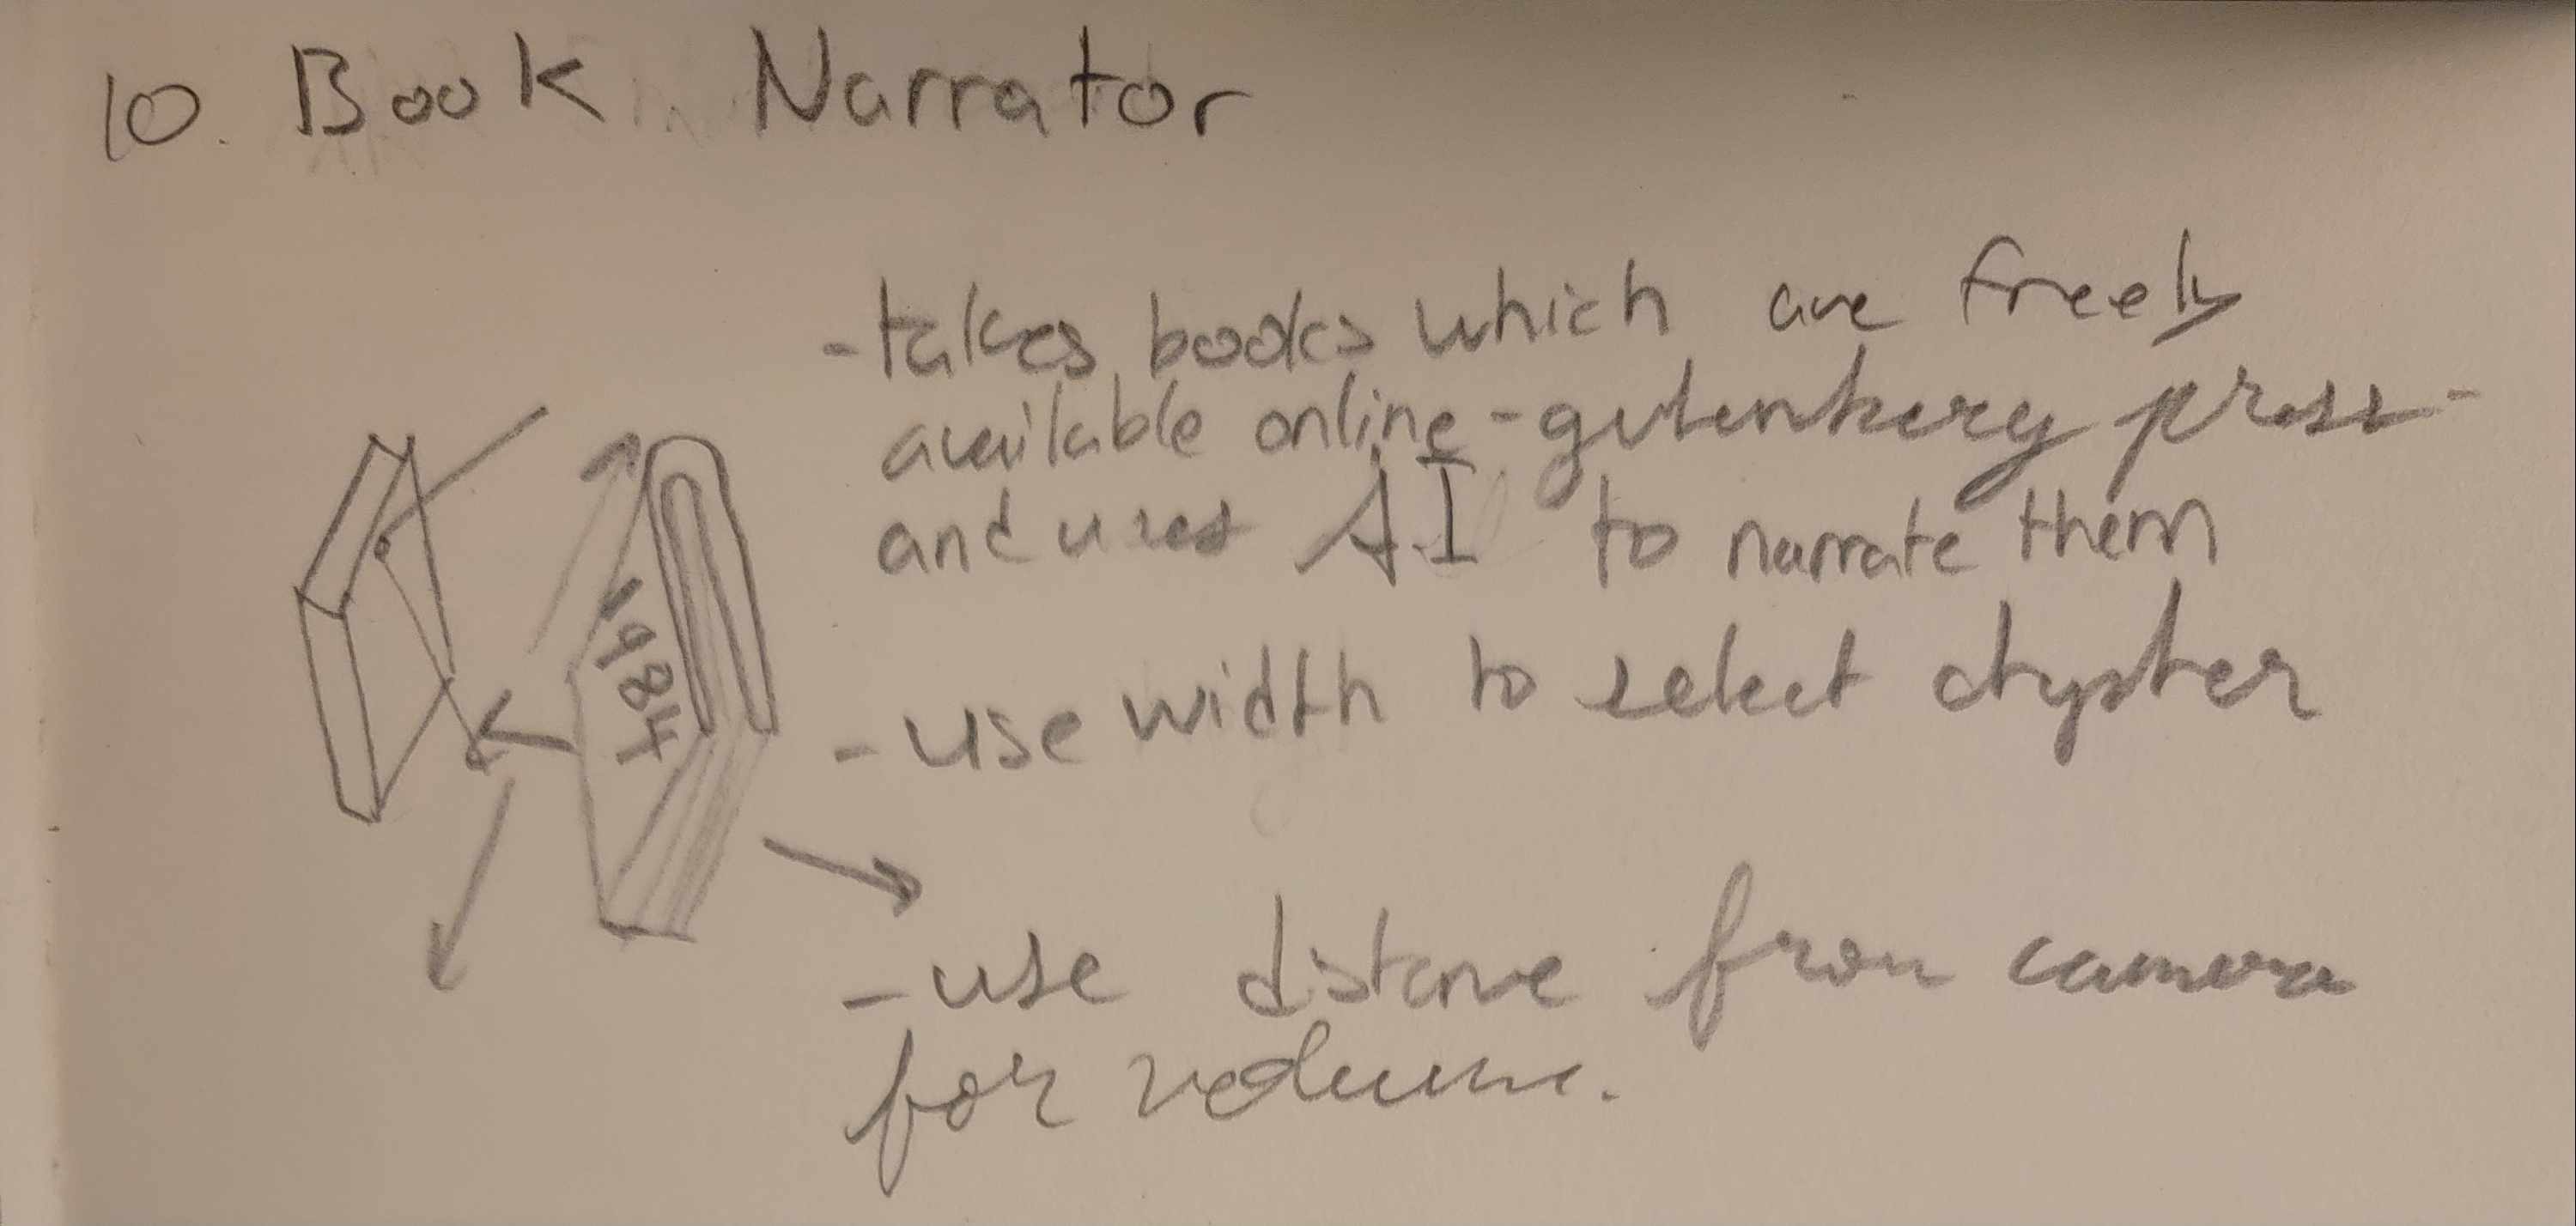 10. Book Narrator
- takes books which are freely
available online - gutenberg press -
and uses AI to narrate them
1984
- use width to select chapter
- use distance from camera
for volume.